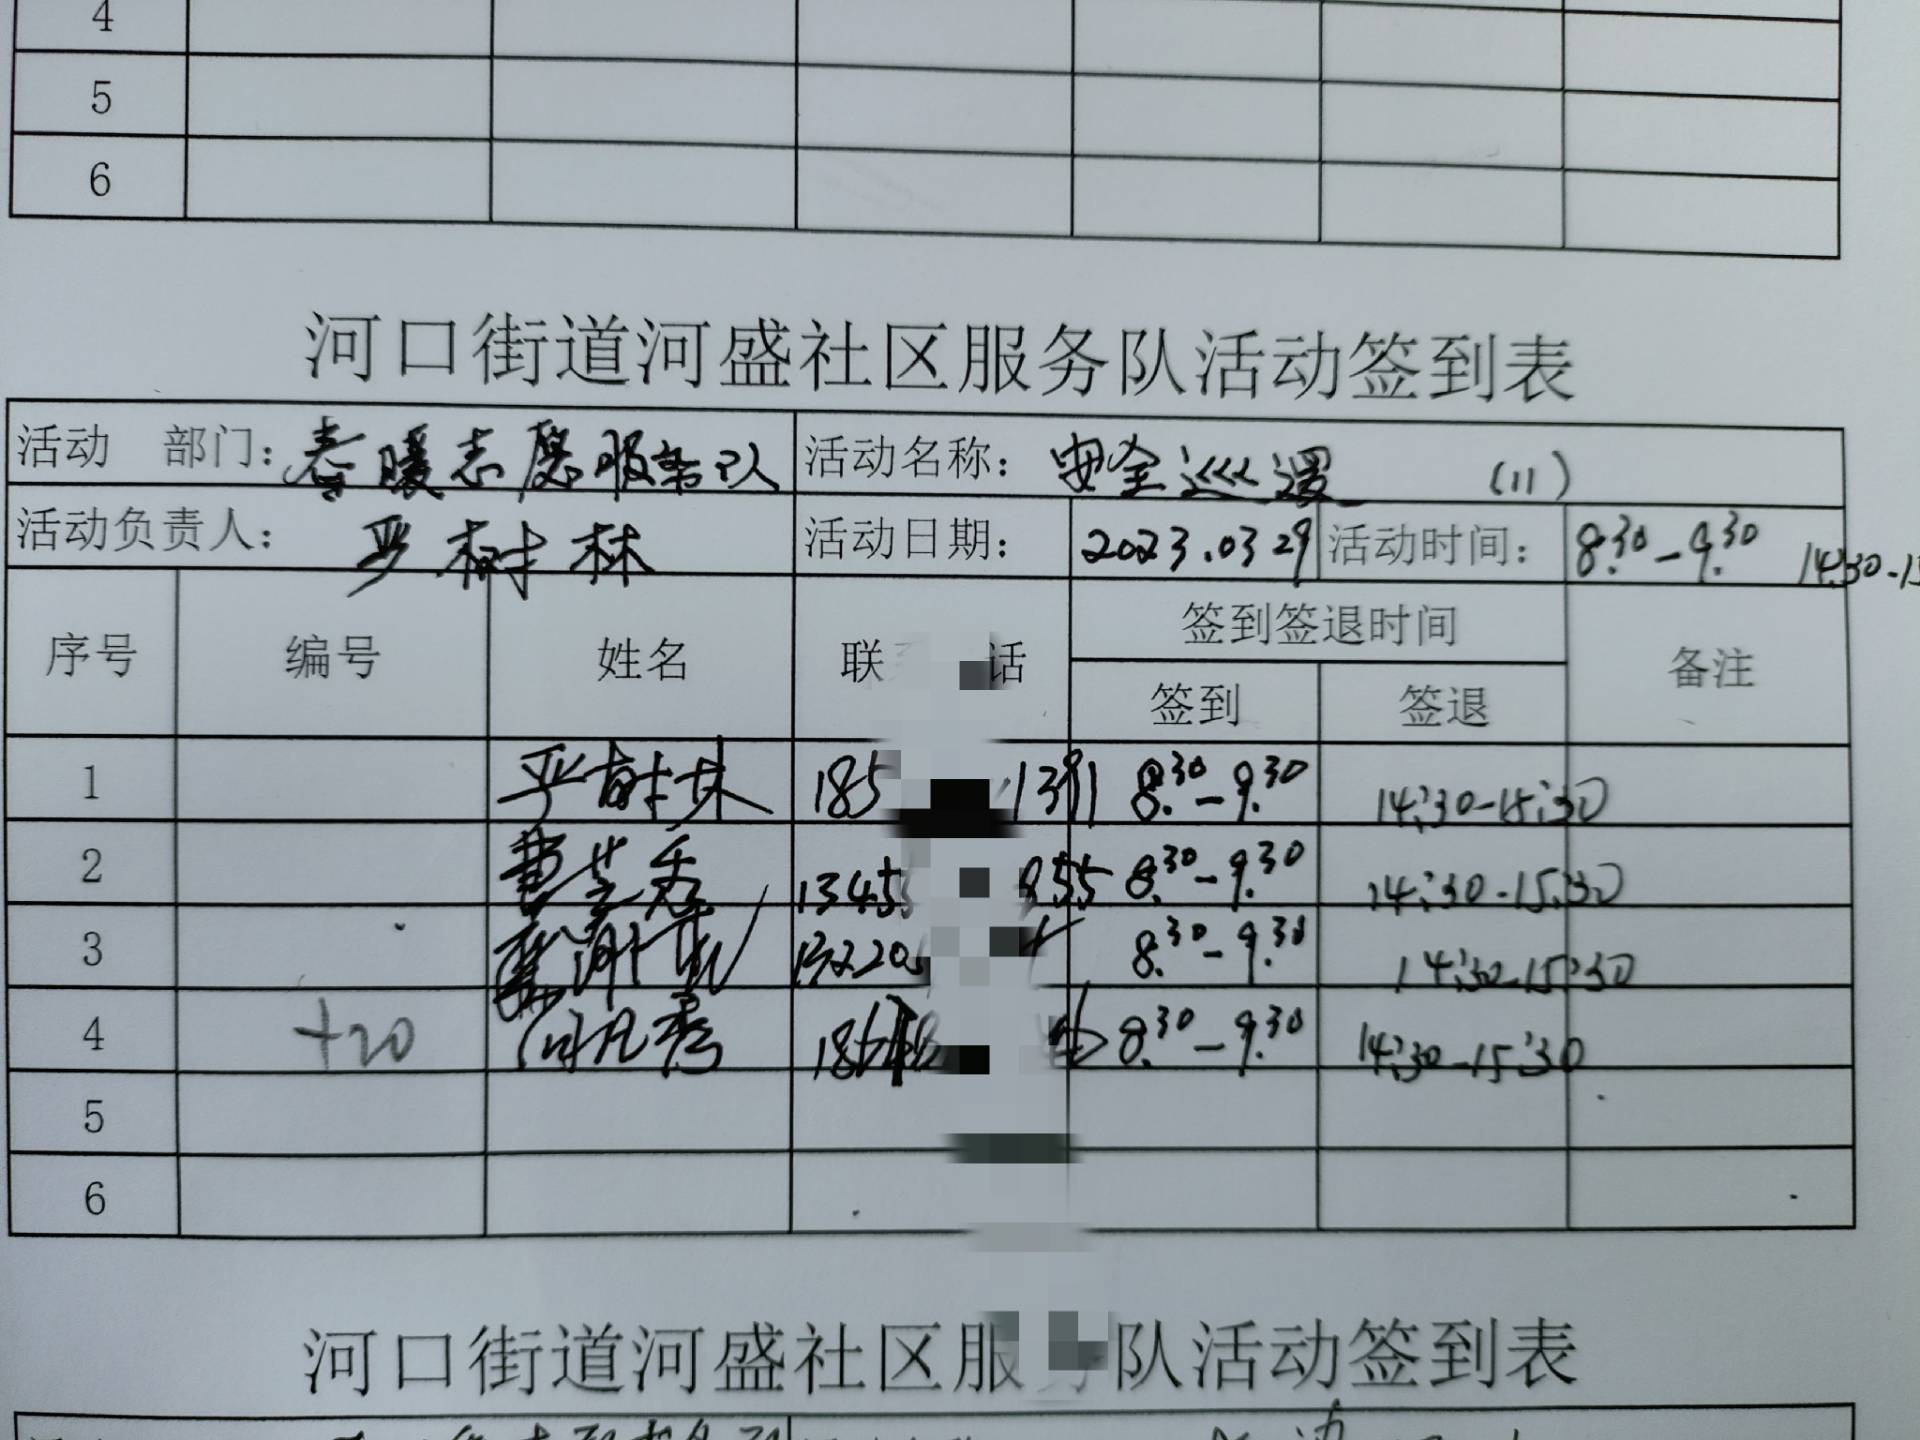 4
5
6
河口街道河盛社区服务队活动签到表
活动 部门：春暖志愿服务队 活动名称：安全巡逻 (11)
活动负责人：严树林 活动日期：2023.03 29 活动时间：8.30-9.30 14:30-15
序号 编号 姓名 联 话 签到签退时间 备注
签到 签退
1 严树林 185 1391 8.30-9.30 14:30-15:30
2 费芝秀 1345 855 8.30-9.30 14:30-15:30
3 13220 8.30-9.30 14:30-15:30
4 +20 8.30-9.30 14:30-15:30
5
6
河口街道河盛社区服 队活动签到表